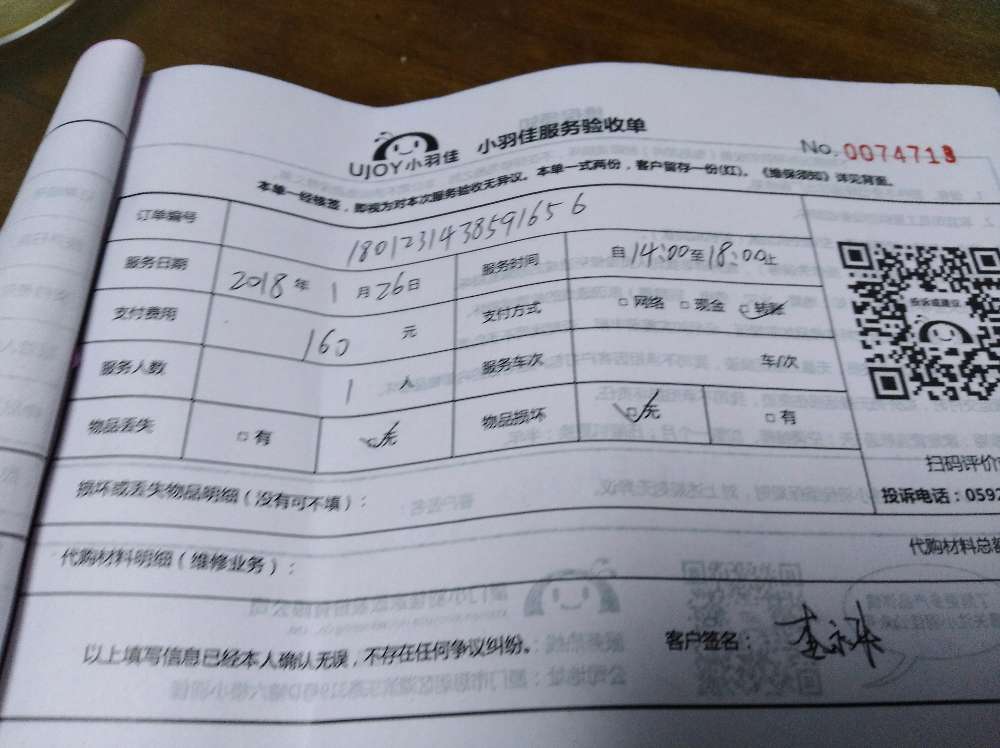 UJOY小羽佳 小羽佳服务验收单
No. 0074713
本单一经核签,即视为对本次服务验收无异议。本单一式两份,客户留存一份(红)。《维保须知》详见背面。
订单编号 18012314385916556
服务日期 2018年1月26日 服务时间 自14:00至18:00止
支付费用 160 元 支付方式 □网络 □现金 ☑转账
服务人数 1 人 服务车次 车/次
物品丢失 □有 ☑无 物品损坏 ☑无 □有
投诉或建议
扫码评价
投诉电话:0592
损坏或丢失物品明细(没有可不填):
代购材料明细(维修业务):
代购材料总
以上填写信息已经本人确认无误,不存在任何争议纠纷。
客户签名: